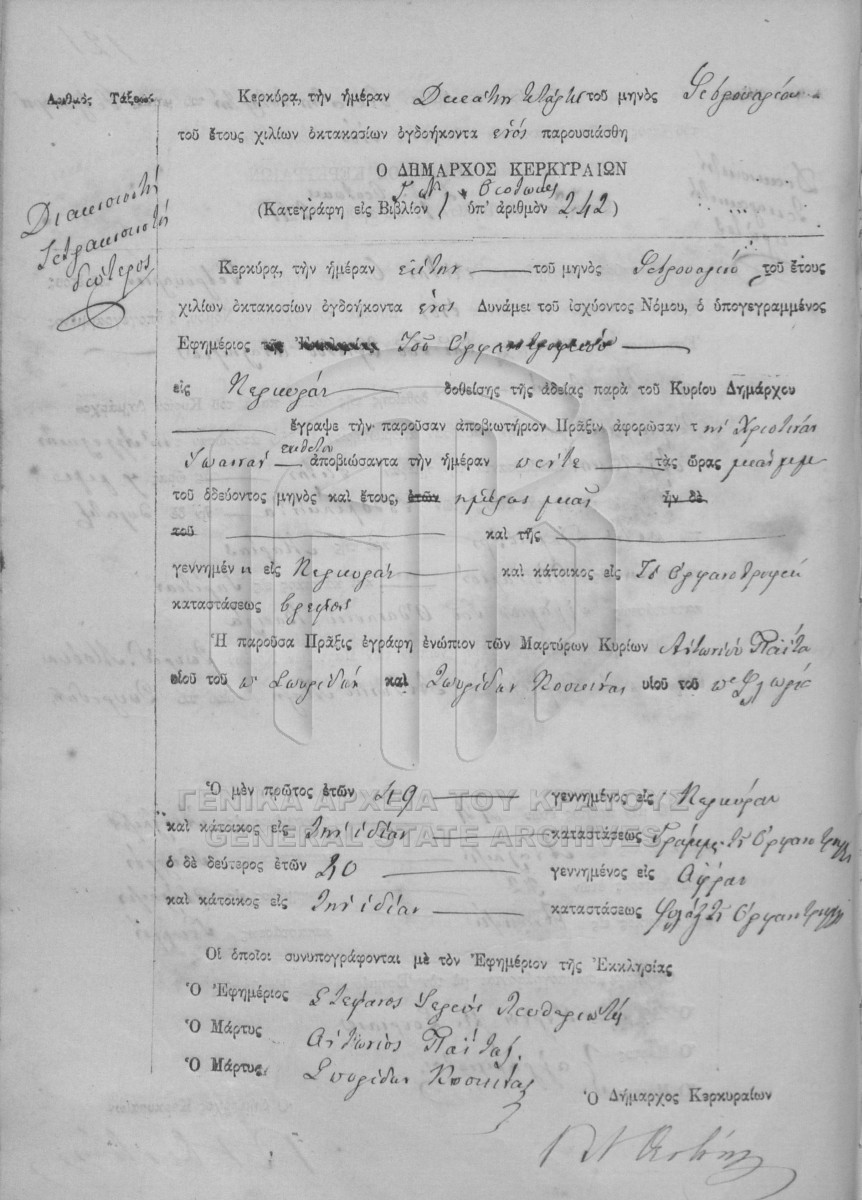 Ἀριθμὸς Τάξεως
Διακοσιοστὴ
Τετρακοσιοστὴ
δεύτερος
Κερκύρᾳ, τὴν ἡμέραν Δεκάτην τετάρτη τοῦ μηνὸς Φεβρουαρίου
τοῦ ἔτους χιλίων ὀκτακοσίων ὀγδοήκοντα ἑνὸς παρουσιάσθη
Ο ΔΗΜΑΡΧΟΣ ΚΕΡΚΥΡΑΙΩΝ
(Κατεγράφη εἰς Βιβλίον 1 ὑπ' ἀριθμὸν 242)
Κερκύρᾳ, τὴν ἡμέραν ἕκτην τοῦ μηνὸς Φεβρουαρίου τοῦ ἔτους
χιλίων ὀκτακοσίων ὀγδοήκοντα ἑνὸς Δυνάμει τοῦ ἰσχύοντος Νόμου, ὁ ὑπογεγραμμένος
Ἐφημέριος τῆς Ἐκκλησίας Τοῦ Ὀρφανοτροφείου
εἰς Κερκυραν δοθείσης τῆς ἀδείας παρὰ τοῦ Κυρίου Δημάρχου
ἔγραψε τὴν παροῦσαν ἀποβιωτήριον Πρᾶξιν ἀφορῶσαν τ ην Χριστιναν
Ἰωάνναν ἔκθετον ἀποβιώσαντα τὴν ἡμέραν πέντε τὰς ὥρας μιαν μμ
τοῦ ὁδεύοντος μηνὸς καὶ ἔτους, ἐτῶν ημέρας μιας ἦν δὲ
τοῦ καὶ τῆς
γεννημέν η εἰς Κερκυραν καὶ κάτοικος εἰς Τὸ Ορφανοτροφεῖ
καταστάσεως βρεφος
Ἡ παροῦσα Πρᾶξις ἐγράφη ἐνώπιον τῶν Μαρτύρων Κυρίων Αντωνιου Παΐτα
υἱοῦ τοῦ π Σπυρίδων καὶ Σπυρίδων Κοσκινας υἱοῦ τοῦ πε Φλωρια
Ὁ μὲν πρῶτος ἐτῶν 49 γεννημένος εἰς Κερκυραν
καὶ κάτοικος εἰς Την ιδίαν καταστάσεως Γραμμ. τ Ορφανοτροφ
ὁ δὲ δεύτερος ἐτῶν 20 γεννημένος εἰς Αφραν
καὶ κάτοικος εἰς Την ιδίαν καταστάσεως Φυλαξ τ Ορφανοτροφ
Οἱ ὁποῖοι συνυπογράφονται μὲ τὸν Ἐφημέριον τῆς Ἐκκλησίας
Ὁ Ἐφημέριος Στεφανος Ιερευς Λευθεριωτη
Ὁ Μάρτυς Αντωνιος Παΐτας
Ὁ Μάρτυς Σπυρίδων Κοσκινας
Ὁ Δήμαρχος Κερκυραίων
ΓΕΝΙΚΑ ΑΡΧΕΙΑ ΤΟΥ ΚΡΑΤΟΥΣ
GENERAL STATE ARCHIVES